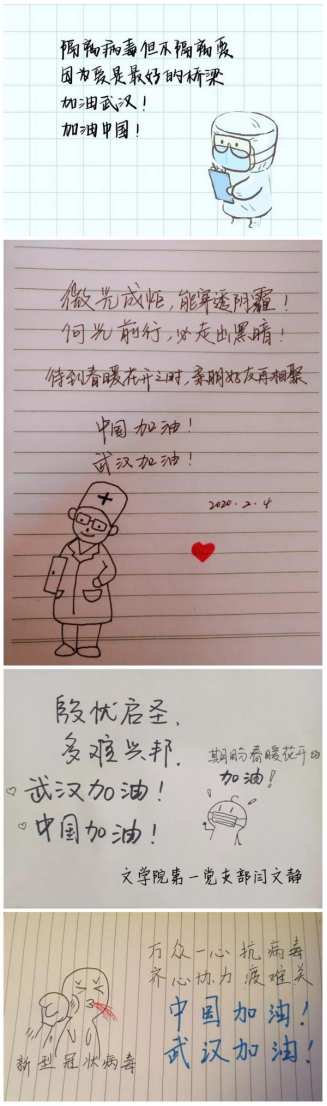 隔离病毒但不隔离爱
因为爱是最好的桥梁
加油武汉！
加油中国！
微光成炬，能穿透阴霾！
向光前行，必走出黑暗！
待到春暖花开之时，亲朋好友再相聚
中国加油！
武汉加油！
2020.2.4
殷忧启圣，
多难兴邦．
武汉加油！
中国加油！
期盼春暖花开的
加油！
文学院第一党支部闫文静
万众一心抗病毒
齐心协力渡难关
中国加油！
武汉加油！
新型冠状病毒